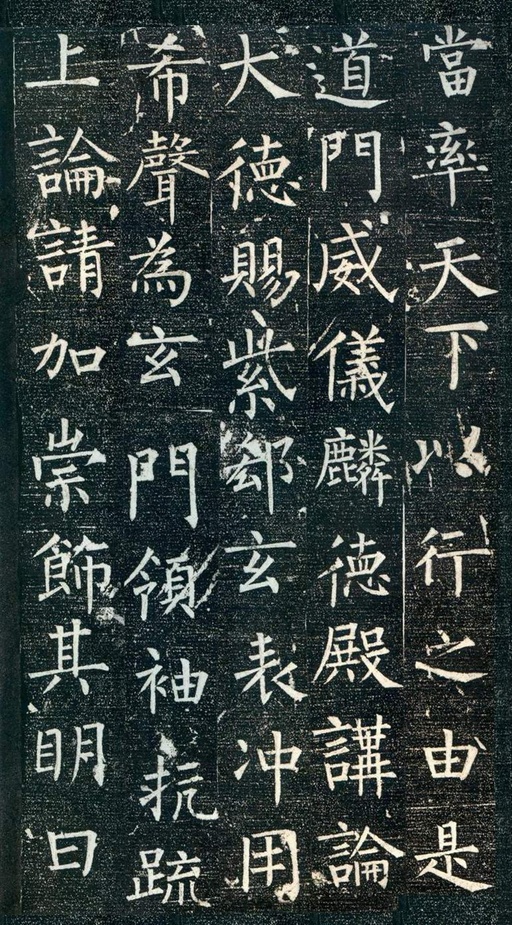 當率天下以行之由是
道門威儀麟德殿講論
大德賜紫郄玄表冲用
希聲為玄門領袖抗疏
上論請加崇飾其明曰